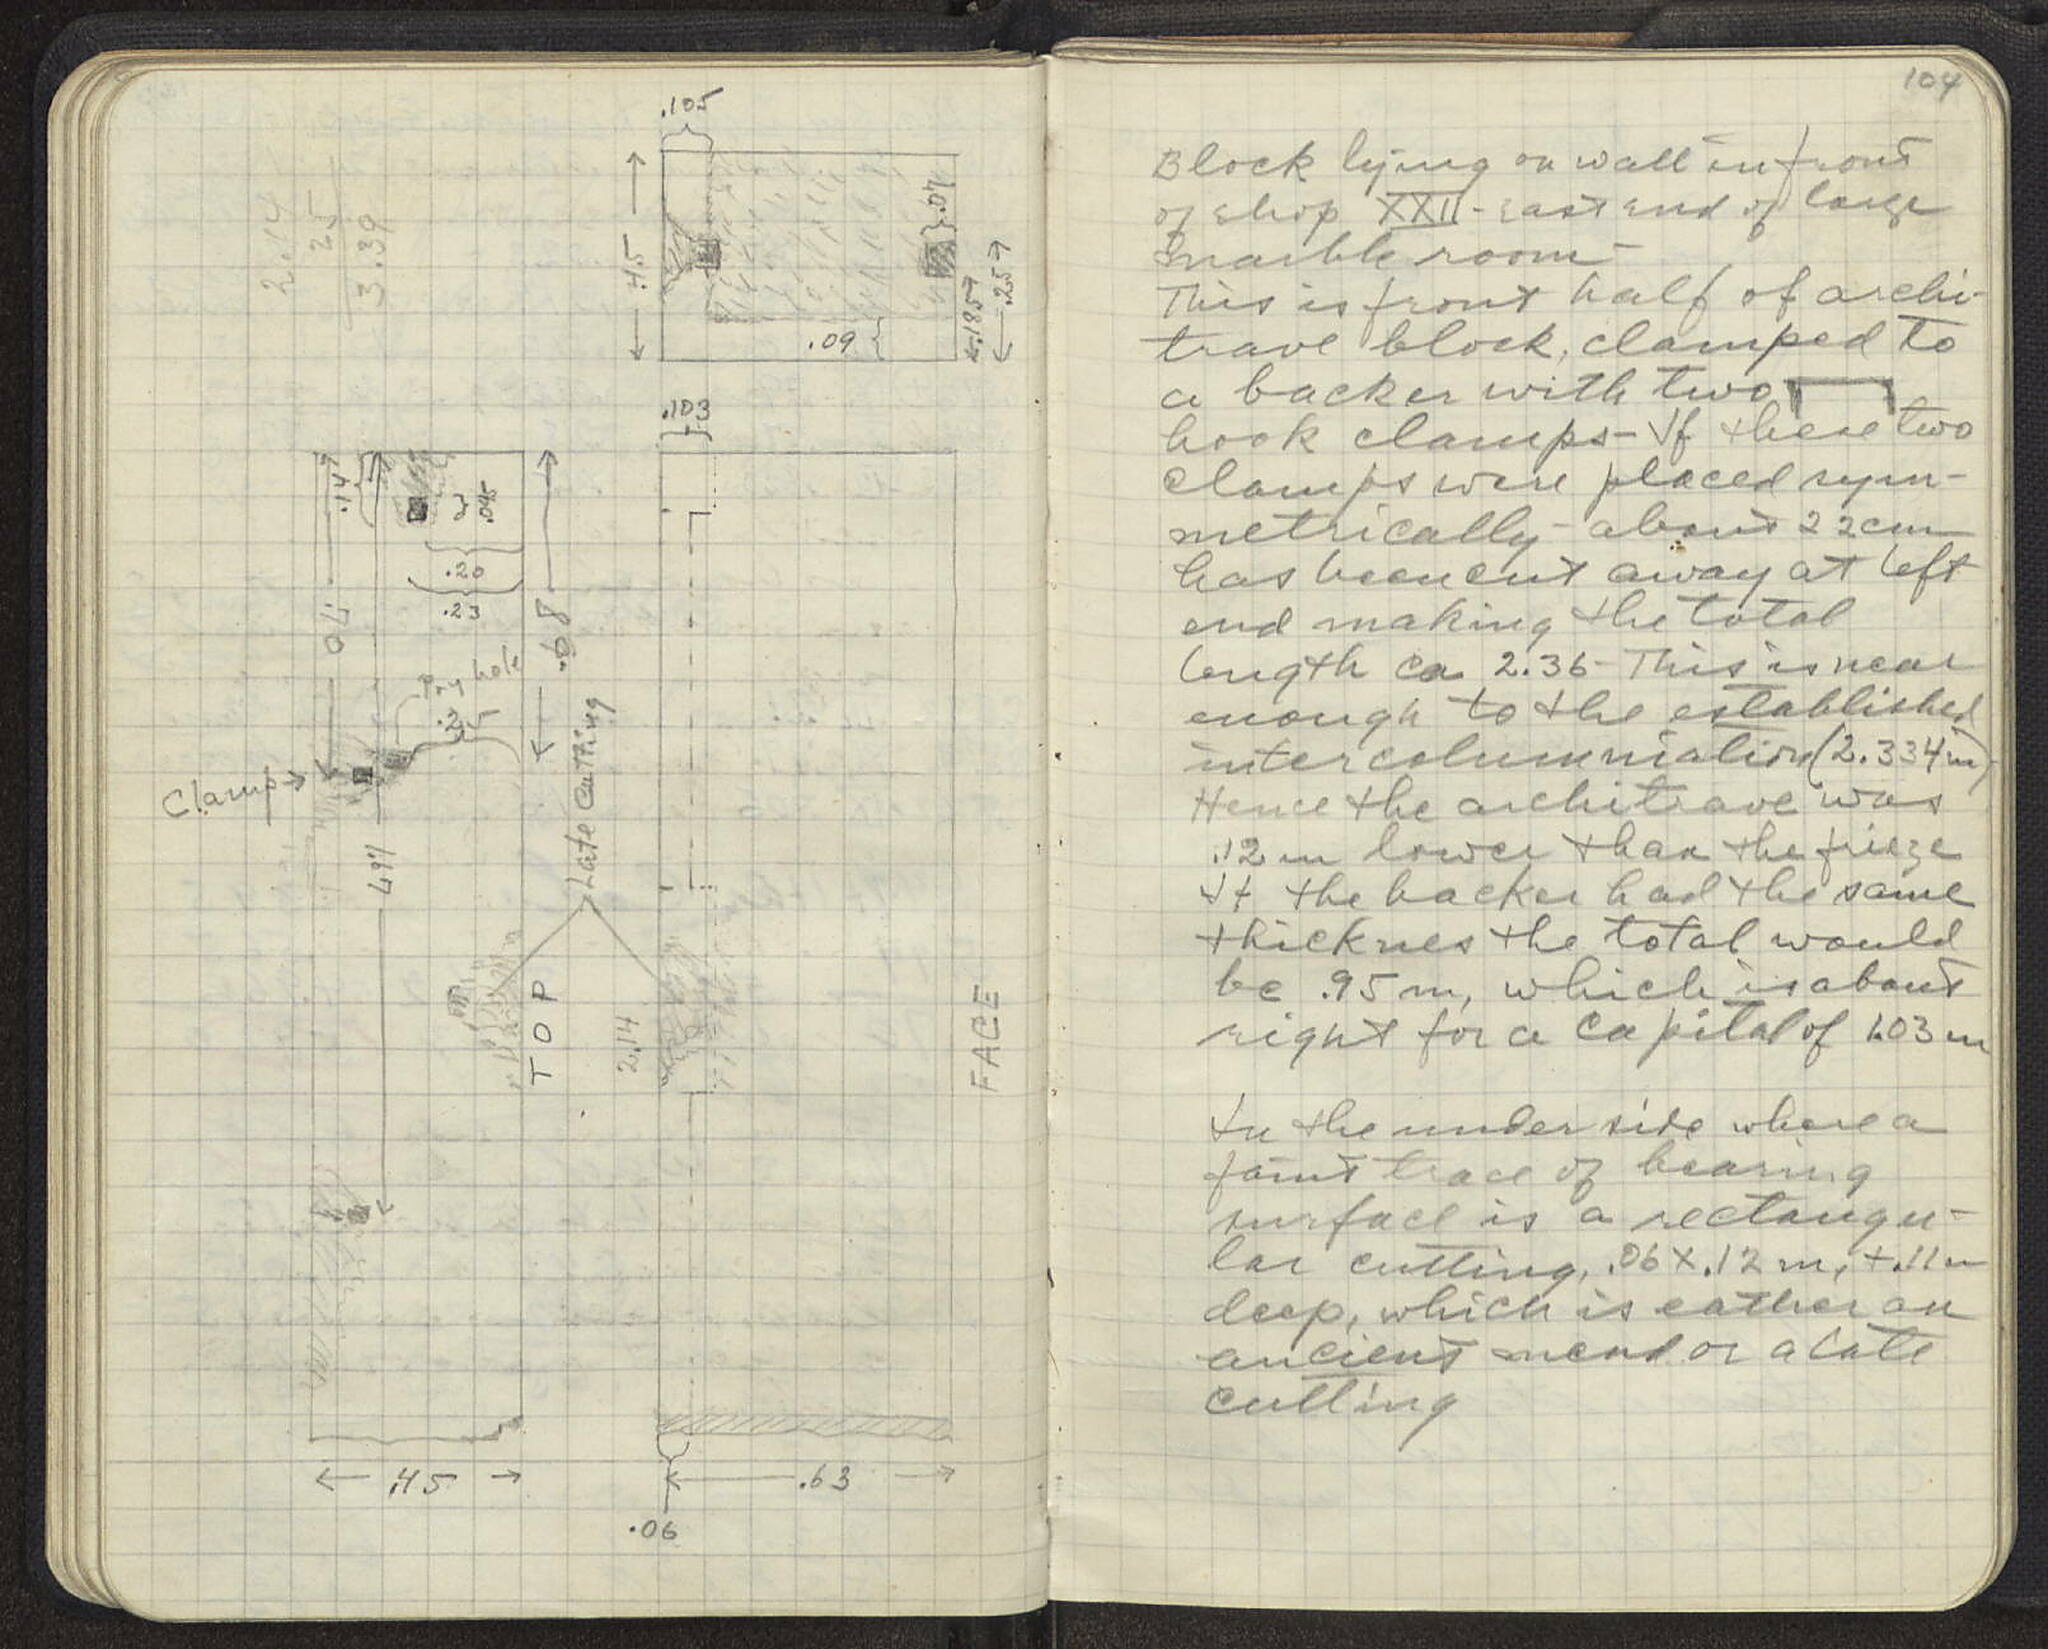 .105
.45
.07
.09
.185
.25
2.14
25
3.39
.103
.14
.095
.20
.23
.70
.68
Pry hole
.25
Clamp →
.97
Late Cutting
TOP
2.14
FACE
.45
.63
.06
104
Block lying on wall in front
of shop XXII - east end of large
marble room -
This is front half of archi-
trave block, clamped to
a backer with two
hook clamps - If these two
clamps were placed sym-
metrically - about 22 cm
has been cut away at left
end making the total
length ca 2.36 - This is near
enough to the established
intercolumniation (2.334 m)
Hence the architrave was
.12 m lower than the frieze
If the backer had the same
thicknes the total would
be .95 m, which is about
right for a capital of 1.03 m
In the under side where a
faint trace of bearing
surface is a rectangu-
lar cutting, .06 x .12 m, + .11 m
deep, which is eather an
ancient mend or a late
cutting